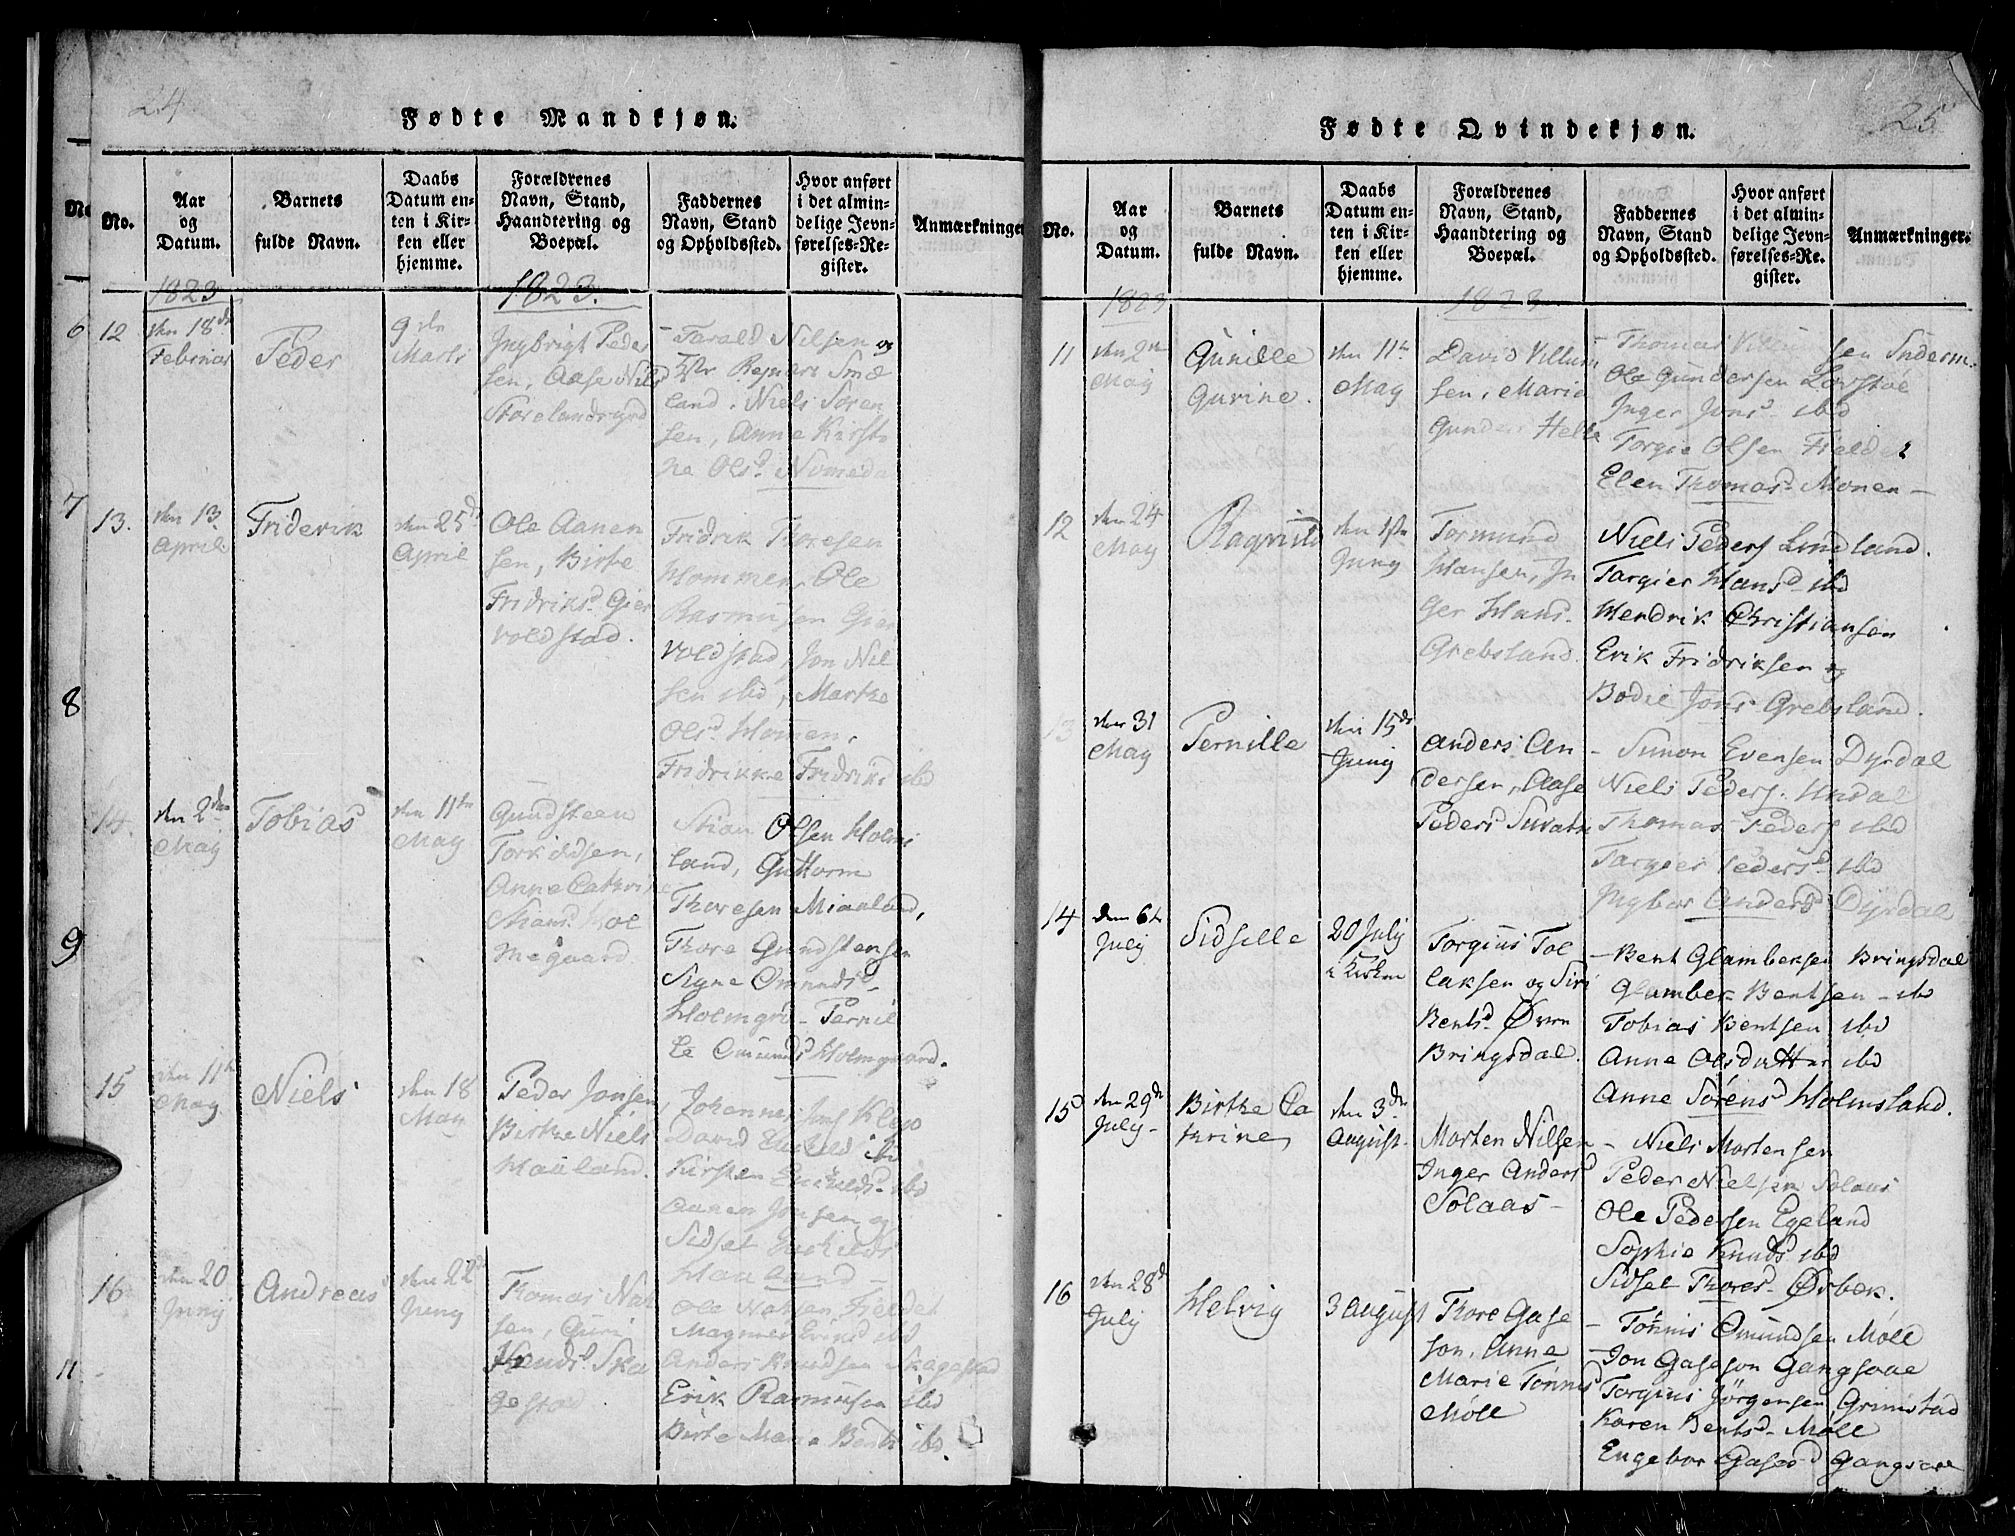 24
Fødte Mandkjøn.
No.
Aar
og
Datum.
Barnets
fulde Navn.
Daabs
Datum en-
ten i Kir-
ken eller
hjemme.
Forældrenes
Navn, Stand,
Haandtering og
Boepæl.
Faddernes
Navn, Stand
og Opholdssted.
Hvor anført
i det almin-
delige Jevn-
førelses-Re-
gister.
Anmærkninger
1823
1823.
12
den 18de
Februar
Peder
9de
Marti
Ingbrigt Peder
sen, Aase Niels
Storelandsryd
Tarald Nilsen og
Smæ
land. Niels Søren
sen, Anne Kirsti
ne Olsd Nomeda
13.
den 13
April
Friderik
den 25d
April
Ole Aanen
sen, Birte
Fridriksd Gier
voldstad.
Fridrik Thoresen
Hommen, Ole
Rasmusen Gier
voldstad, Jon Niel
sen ibd, Marthe
Olsd Homen,
Fridrikke Fridriksd ibd
14.
den 2den
May
Tobias
den 11te
May
Gundsteen
Torkildsen,
Anne Cathri
Hansd Hol
megaard.
Stian Olsen Holms
land, Guttorm
Thoresen Miaaland,
Thore Gundstensen
Signe Omunds
Holmgrd - Pernil
le Omunds Holmgaard.
15
den 11te
May
Niels
den 18
May
Peder Jonsen
Birthe Niels
Hauland.
Johannes Jons Klep
David ibd
Kirsten ibd
Aanen Jonsen og
Sidsel
Hauland
16
den 20
Juny
Andreas
den 22d
Juny
Thomas
sen, Guri
Knudsd Ska
gestad
Ole Fieldet
ibd
Anders Knudsen Skagestad
Erik Rasmusen ibd
Birte Marie Bents ibd.
6
7
8
9
11
25
Fødte Qvindekjøn.
No.
Aar
og
Datum.
Barnets
fulde Navn.
Daabs
Datum en-
ten i Kir-
ken eller
hjemme.
Forældrenes
Navn, Stand,
Haandtering og
Boepæl.
Faddernes
Navn, Stand
og Opholdssted.
Hvor anført
i det almin-
delige Jevn-
førelses-Re-
gister.
Anmærkninger.
1823
1823
11
den 2den
May
Gunille
Gurine.
den 11te
May
David Villum
sen, Marie
Gunders Helle
Thomas Villumsen
Ole Gundersen Lovstøe
Inger Jonsd ibd
Torgie Olsen Fieldet
Elen Thomasd Monen
12
den 24
May
Ragnild
den 1ste
Juny
Tormund
Hansen, In
ger Hans.
Grebsland.
Niels Peders Lindland.
Targier Hansd ibd
Hendrik Christiansen
Erik Fridriksen og
Bodil Jons Grebsland.
13
den 31
May
Pernille
den 15de
Juny
Anders An
dersen, Aase
Peders
Simon Evensen Dyrdal
Niels Peders. Undal
Thomas Peders ibd
Targier Pedersd ibd
Ingbor Andersd Dyrdal
14
den 6te
July
Sidselle
20 July
i Kirken
Torgius Tol
laksen og Siri
Bentsd Øvre
Bringsdal.
Bent Glambeksen Bringsdal
Glambek Bentsen - ibd
Tobias Bentsen ibd
Anne Olsdatter ibd
Anne Sørensd Holmsland.
15
den 29de
July
Birthe Ca
thrine
den 3de
August
Morten Nilsen
Inger Andersd
Solaas
Niels Mortensen
Peder Nielsen Solaas
Ole Pedersen Egeland
Sophie Knudsd ibd
Sidsel Thoresd Ørbek.
16
den 28d
July
Helvig
3 August
Thore Gase
son, Anne
Marie Tønnis
Møll
Tønnis Omundsen Møll
Jon Gaseson Gangsaae
Torgius Jørgensen Grimstad
Karen Bentsd Møll
Engebor Gasesd Gangsaae